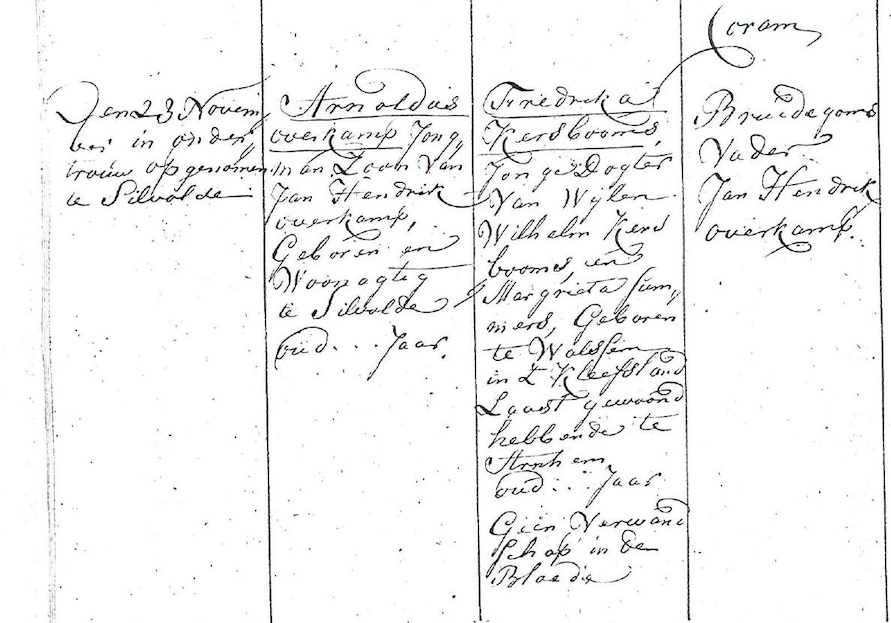 Den 23 Novem
ber in onder,
trouw opgenomen
te Silvolde
Arnoldus
overkamp Jong
man Zoon Van
Jan Hendrik
overkamp,
Geboren en
Woonagteg
te Silvolde
oud . . . Jaar.
Fredrica
Kersbooms,
Jonge Dogter
Van Wylen
Wilhelm Kers
booms, en
Margrieta
mers, Geboren
te
in t Kleefsland
Laast gewoond
hebbende te
Arnhem
oud . . . Jaar
Geen Verwand
schap in den
Bloede
Coram
Bruidegoms
Vader
Jan Hendrik
overkamp.